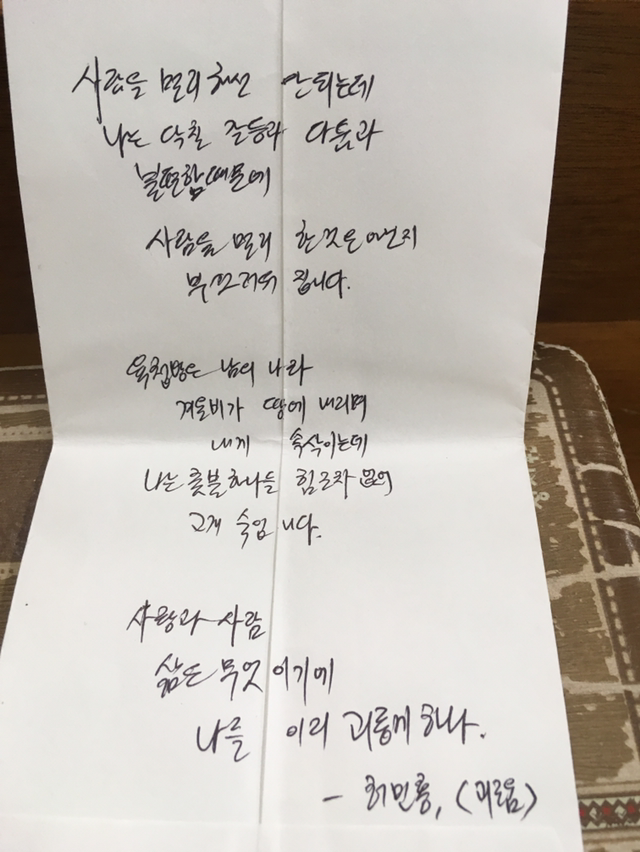 사람을 멀리 하선 안되는데
나는 닥칠 갈등과 다툼과
불편함때문에
사람을 멀리 한것은 어쩐지
부끄러워 집니다.
육첩방은 남의 나라
겨울비가 땅에 내리며
내게 속삭이는데
나는 촛불하나들 힘조차 없어
고개 숙입니다.
사랑과 사람
삶은 무엇이기에
나를 이리 괴롭게 하나.
- 허민홍, (괴로움)